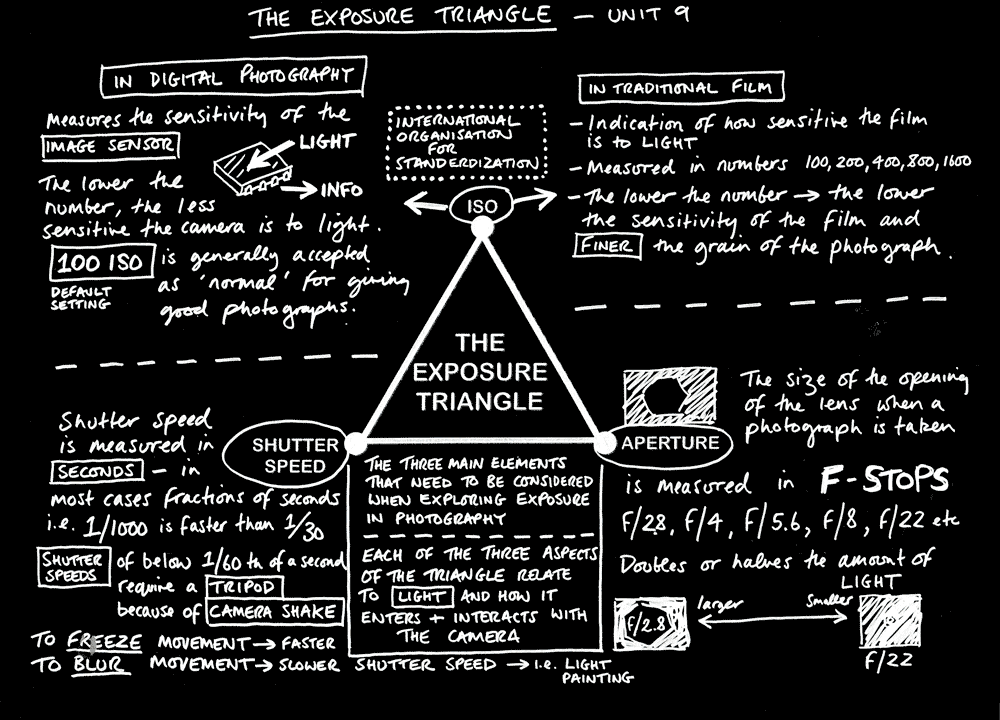 THE EXPOSURE TRIANGLE – UNIT 9
IN DIGITAL PHOTOGRAPHY
Measures the sensitivity of the
IMAGE SENSOR
LIGHT
INFO
The lower the
number, the less
sensitive the camera is to light.
100 ISO is generally accepted
DEFAULT
SETTING
as 'normal' for giving
good photographs.
INTERNATIONAL
ORGANISATION
FOR
STANDERDIZATION
ISO
IN TRADITIONAL FILM
- Indication of how sensitive the film
is to LIGHT
- Measured in numbers 100, 200, 400, 800, 1600
- The lower the number → the lower
the sensitivity of the film and
FINER the grain of the photograph.
THE
EXPOSURE
TRIANGLE
SHUTTER
SPEED
Shutter speed
is measured in
SECONDS – in
most cases fractions of seconds
i.e. 1/1000 is faster than 1/30
SHUTTER
SPEEDS
of below 1/60 th of a second
require a TRIPOD
because of CAMERA SHAKE
TO FREEZE MOVEMENT → FASTER
TO BLUR MOVEMENT → SLOWER SHUTTER SPEED → i.e. LIGHT
PAINTING
THE THREE MAIN ELEMENTS
THAT NEED TO BE CONSIDERED
WHEN EXPLORING EXPOSURE
IN PHOTOGRAPHY
EACH OF THE THREE ASPECTS
OF THE TRIANGLE RELATE
TO LIGHT AND HOW IT
ENTERS + INTERACTS WITH
THE CAMERA
APERTURE
The size of the opening
of the lens when a
photograph is taken
is measured in F-STOPS
f/2.8, f/4, f/5.6, f/8, f/22 etc
Doubles or halves the amount of
LIGHT
f/2.8
larger
smaller
f/22